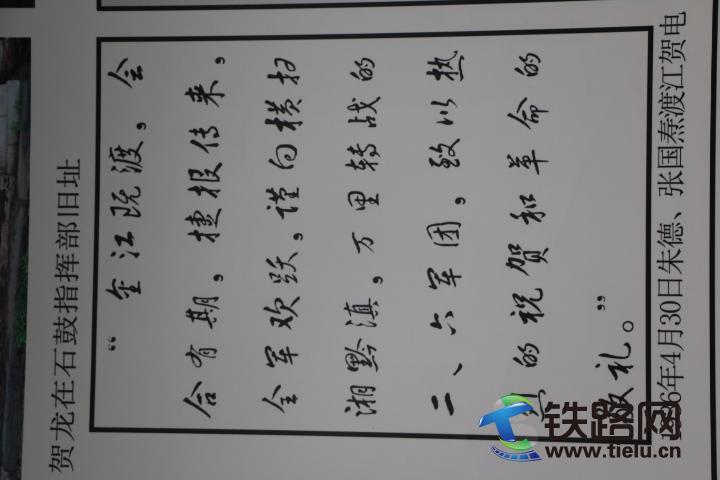 贺龙在石鼓指挥部旧址
“金江既渡，会
合有期，捷报传来，
全军欢跃，谨向横扫
湘黔滇，万里转战的
二、六军团，致以热
的祝贺和革命的
礼。”
6年4月30日朱德、张国焘渡江贺电
铁路网
www.tielu.cn